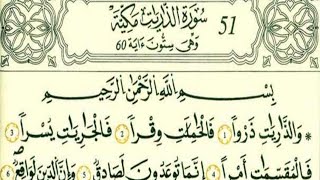 سُورَةُ الذَّارِيَاتِ مَكِّيَّةٌ 51
وَهِيَ سِتُّونَ ءَايَة 60
بِسْمِ اللَّهِ الرَّحْمَٰنِ الرَّحِيمِ
وَالذَّٰرِيَٰتِ ذَرْوًا 1 فَالْحَٰمِلَٰتِ وِقْرًا 2 فَالْجَٰرِيَٰتِ يُسْرًا 3
فَالْمُقَسِّمَٰتِ أَمْرًا 4 إِنَّمَا تُوعَدُونَ لَصَادِقٌ 5 وَإِنَّ الدِّينَ لَوَٰقِعٌ 6